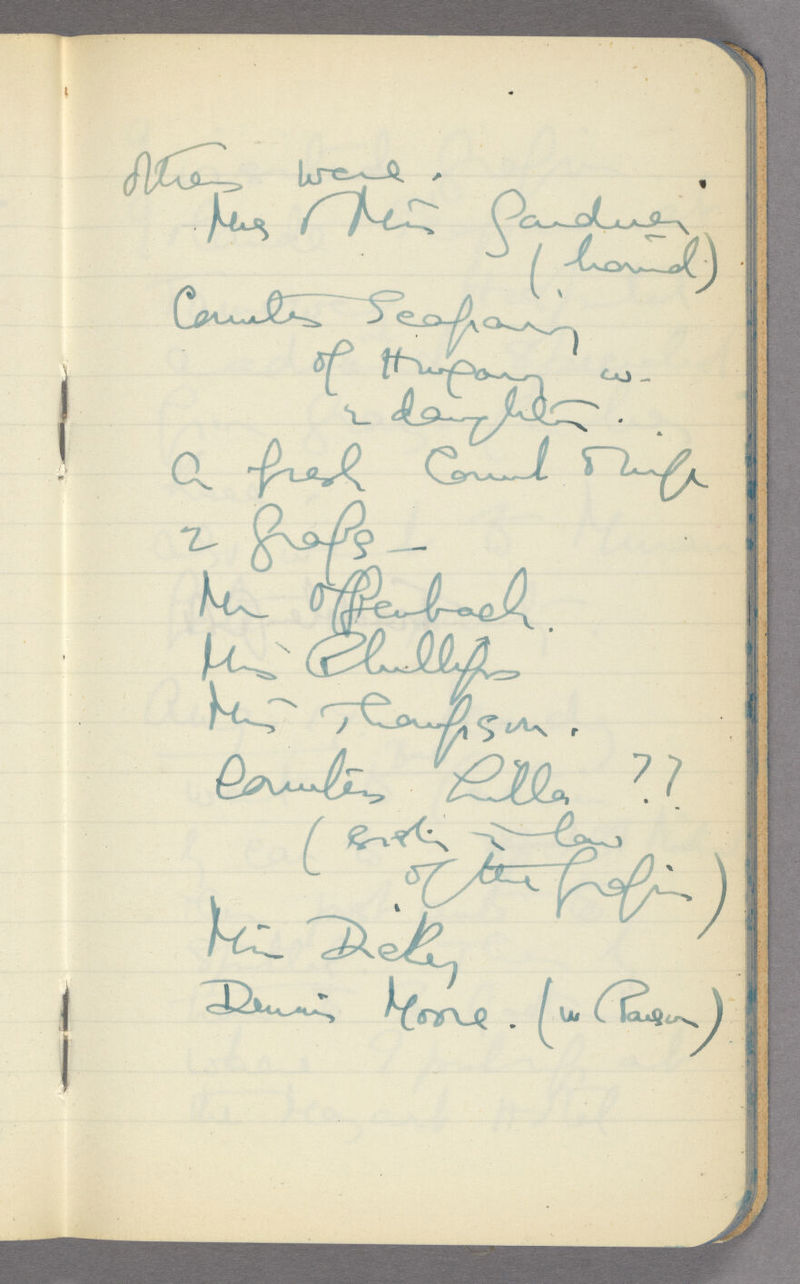 others were.
Mrs & Miss Gardner
(horrid)
Countess
of Hungary w.
2 daughters.
a fresh Count
2 Grafs –
Mr Offenbach.
Miss Phillips
Miss Thompson.
Countess Lilla ??
(sister in law
of the Grafin)
Miss Dickey
Dennis Moore. (w